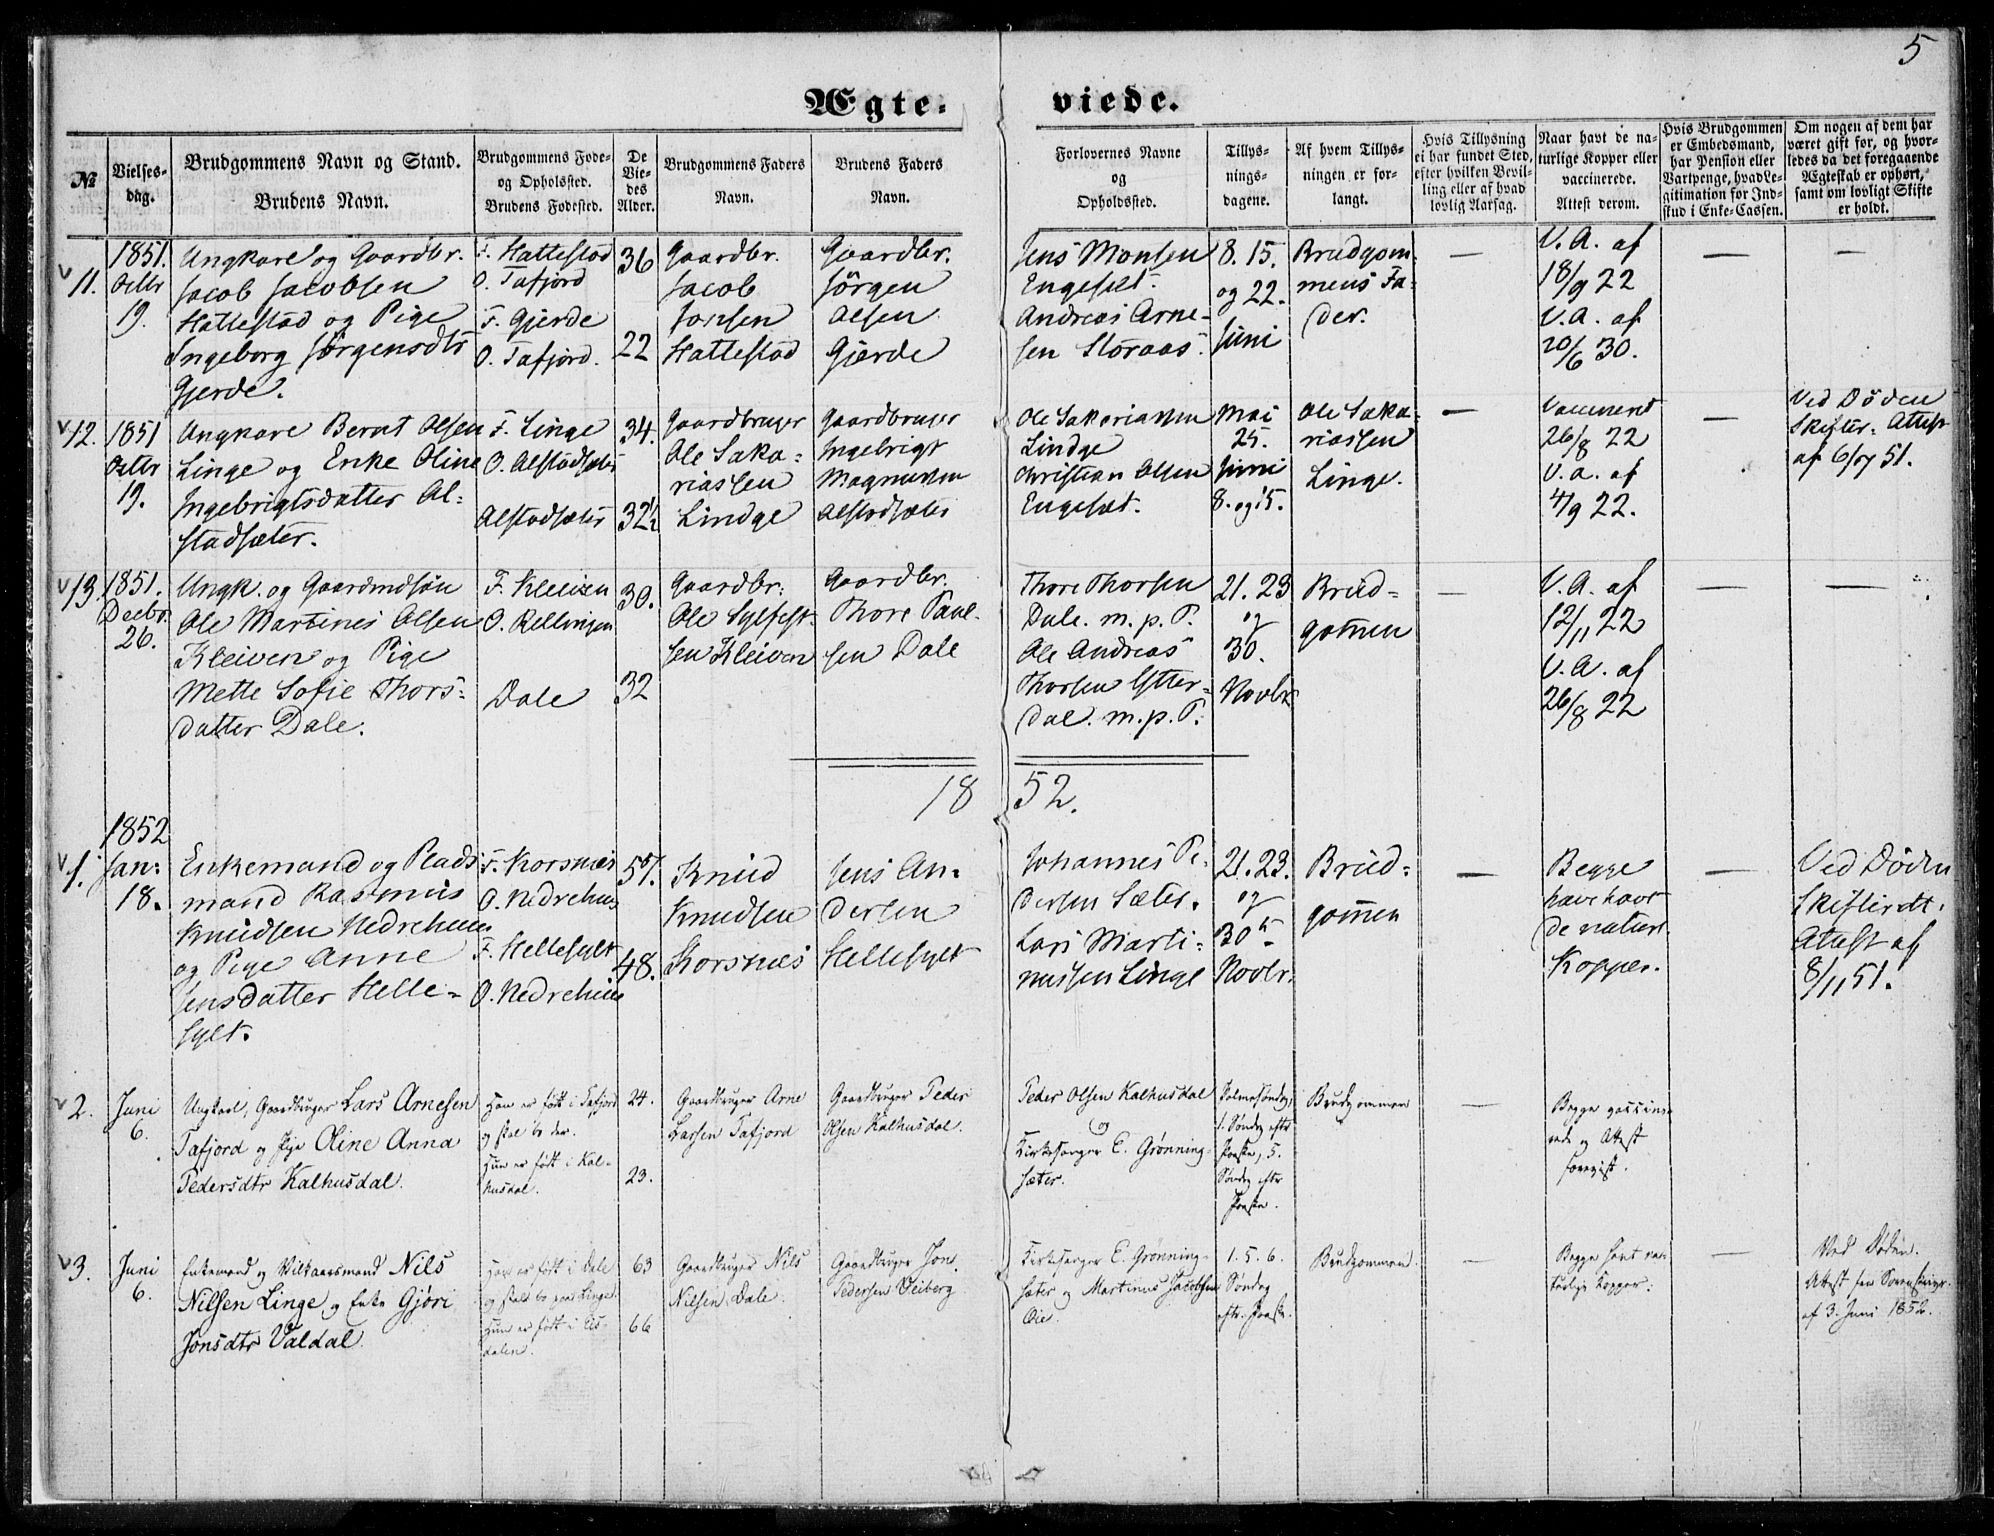 5
Ægte-
viede.
№
Vielses-
dag.
Brudgommens Navn og Stand.
Brudens Navn.
Brudgommens Føde-
og Opholdssted.
Brudens Fødested.
De
Vie-
des
Alder.
Brudgommens Faders
Navn.
Brudens Faders
Navn.
Forlovernes Navne
og
Opholdssted.
Tillys-
nings-
dagene.
Af hvem Tillys-
ningen er for-
langt.
Hvis Tillysning
ei har fundet Sted,
efter hvilken Bevil-
ling eller af hvad
lovlig Aarsag.
Naar havt de na-
turlige Kopper eller
vaccinerede.
Attest derom.
Hvis Brudgommen
er Embedsmand,
har Pension eller
Vartpenge, hvad Le-
gitimation for Ind-
skud i Enke-Cassen.
Om nogen af dem har
været gift før, og hvor-
ledes da det foregaaende
Ægteskab er ophørt,
samt om lovligt Skifte
er holdt.
11.
1851.
Octbr
19.
Ungkarl og Gaardbr.
Jacob Jacobsen
Hattestad og Pige
Ingeborg Jørgensdtr
Gjerde.
F. Hattestad
O. Tafjord
F. Gjerde
O. Tafjord.
36
22
Gaardbr.
Jacob
Jonsen
Hattestad
Gaardbr.
Jørgen
Olsen
Gjerde
Jens Monsen
Engeset.
Andreas Arne-
sen Storaas.
8. 15.
og 22.
Juni
Brudgom-
mens Fa-
der.
—
V. A. af
18/9 22
V. A. af
20/6 30.
—
—
12.
1851
Octbr
19.
Ungkarl Bernt Olsen
Linge og Enke Oline
Ingebrigtsdatter Al-
stadsæter.
F. Linge
O. Alstadsæter
Alstadsæter
34.
32½
Gaardbruger
Ole Saka-
riassen
Lindge
Gaardbruger
Ingebrigt
Magnussen
Alstadsæter
Ole Sakariassen
Lindge
Christian Olsen
Engeset.
Mai
25.
Juni
8. og 15.
Ole Saka-
riassen
Linge.
—
Vaccineret
26/8 22
V. A. af
4/9 22.
—
Ved Døden
Skifter. Attest
af 6/7 51.
13.
1851.
Decbr.
26.
Ungk. og Gaardmdsøn
Ole Martines Olsen
Kleiven og Pige
Mette Sofie Thors-
datter Dale.
F. Kleiven
O. Rellingen
Dale
30.
32
Gaardbr.
Ole Sylfest-
sen Kleiven
Gaardbr.
Thore Paul-
sen Dale
Thore Thorsen
Dale. m. p. P.
Ole Andreas
Thorsen Ytter-
dal. m. p. P.
21. 23
og
30.
Novbr
Brud-
gommen
—
V. A. af
12/11 22
V. A. af
26/8 22
—
—
18 52.
1852
1.
Jan:
18.
Enkemand og Plads-
mand Rasmus
Knudsen Nedrehuus
og Pige Anne
Jensdatter Helle-
sylt.
F. Korsnæs
O. Nedrehuus
F. Hellesylt
O. Nedrehuus
57.
48.
Knud
Knudsen
Korsnæs
Jens An-
dersen
Hellesylt
Johannes Pe-
dersen Sæter.
Lars Marti-
nussen Linge
21. 23.
og
30te
Novbr.
Brud-
gommen
—
Begge
have havt
de naturl.
Kopper.
—
Ved Døden
Skifteret.
Attest af
8/11 51.
2.
Juni
6.
Ungkarl, Gaardbruger Lars Arnesen
Tafjord og Pige Oline Anna
Pedersdtr Kalhusdal.
Han er født i Tafjord
og skal bo der.
Hun er født i Kal-
husdal.
24.
23.
Gaardbruger Arne
Larsen Tafjord
Gaardbruger Peder
Olsen Kalhusdal.
Peder Olsen Kalhusdal
og
Kirkesanger E. Grønning-
sæter.
Palmesøndag,
1. Søndag efter
Paaske, 5.
Søndag efter
Paaske.
Brudgommen
—
Begge vaccine-
rede og Attest
forevist.
3.
Juni
6.
Enkemand og Vilkaarsmand Nils
Nilsen Linge og Enke Gjøri
Jonsdtr Valdal.
Han er født i Dale
og skal bo paa Linge.
Hun er født i Eids-
dalen.
63
66
Gaardbruger Nils
Nilsen Dale.
Gaardbruger Jon
Pedersen Veiberg.
Kirkesanger E. Grønning-
sæter og Martinus Jacobsen
Øie.
1. 5. 6.
Søndag
eftr. Paaske.
Brudgommen.
Begge havt na-
turlige Kopper.
—
Ved Døden.
Attest fra Sorenskriver
af 3. Juni 1852.